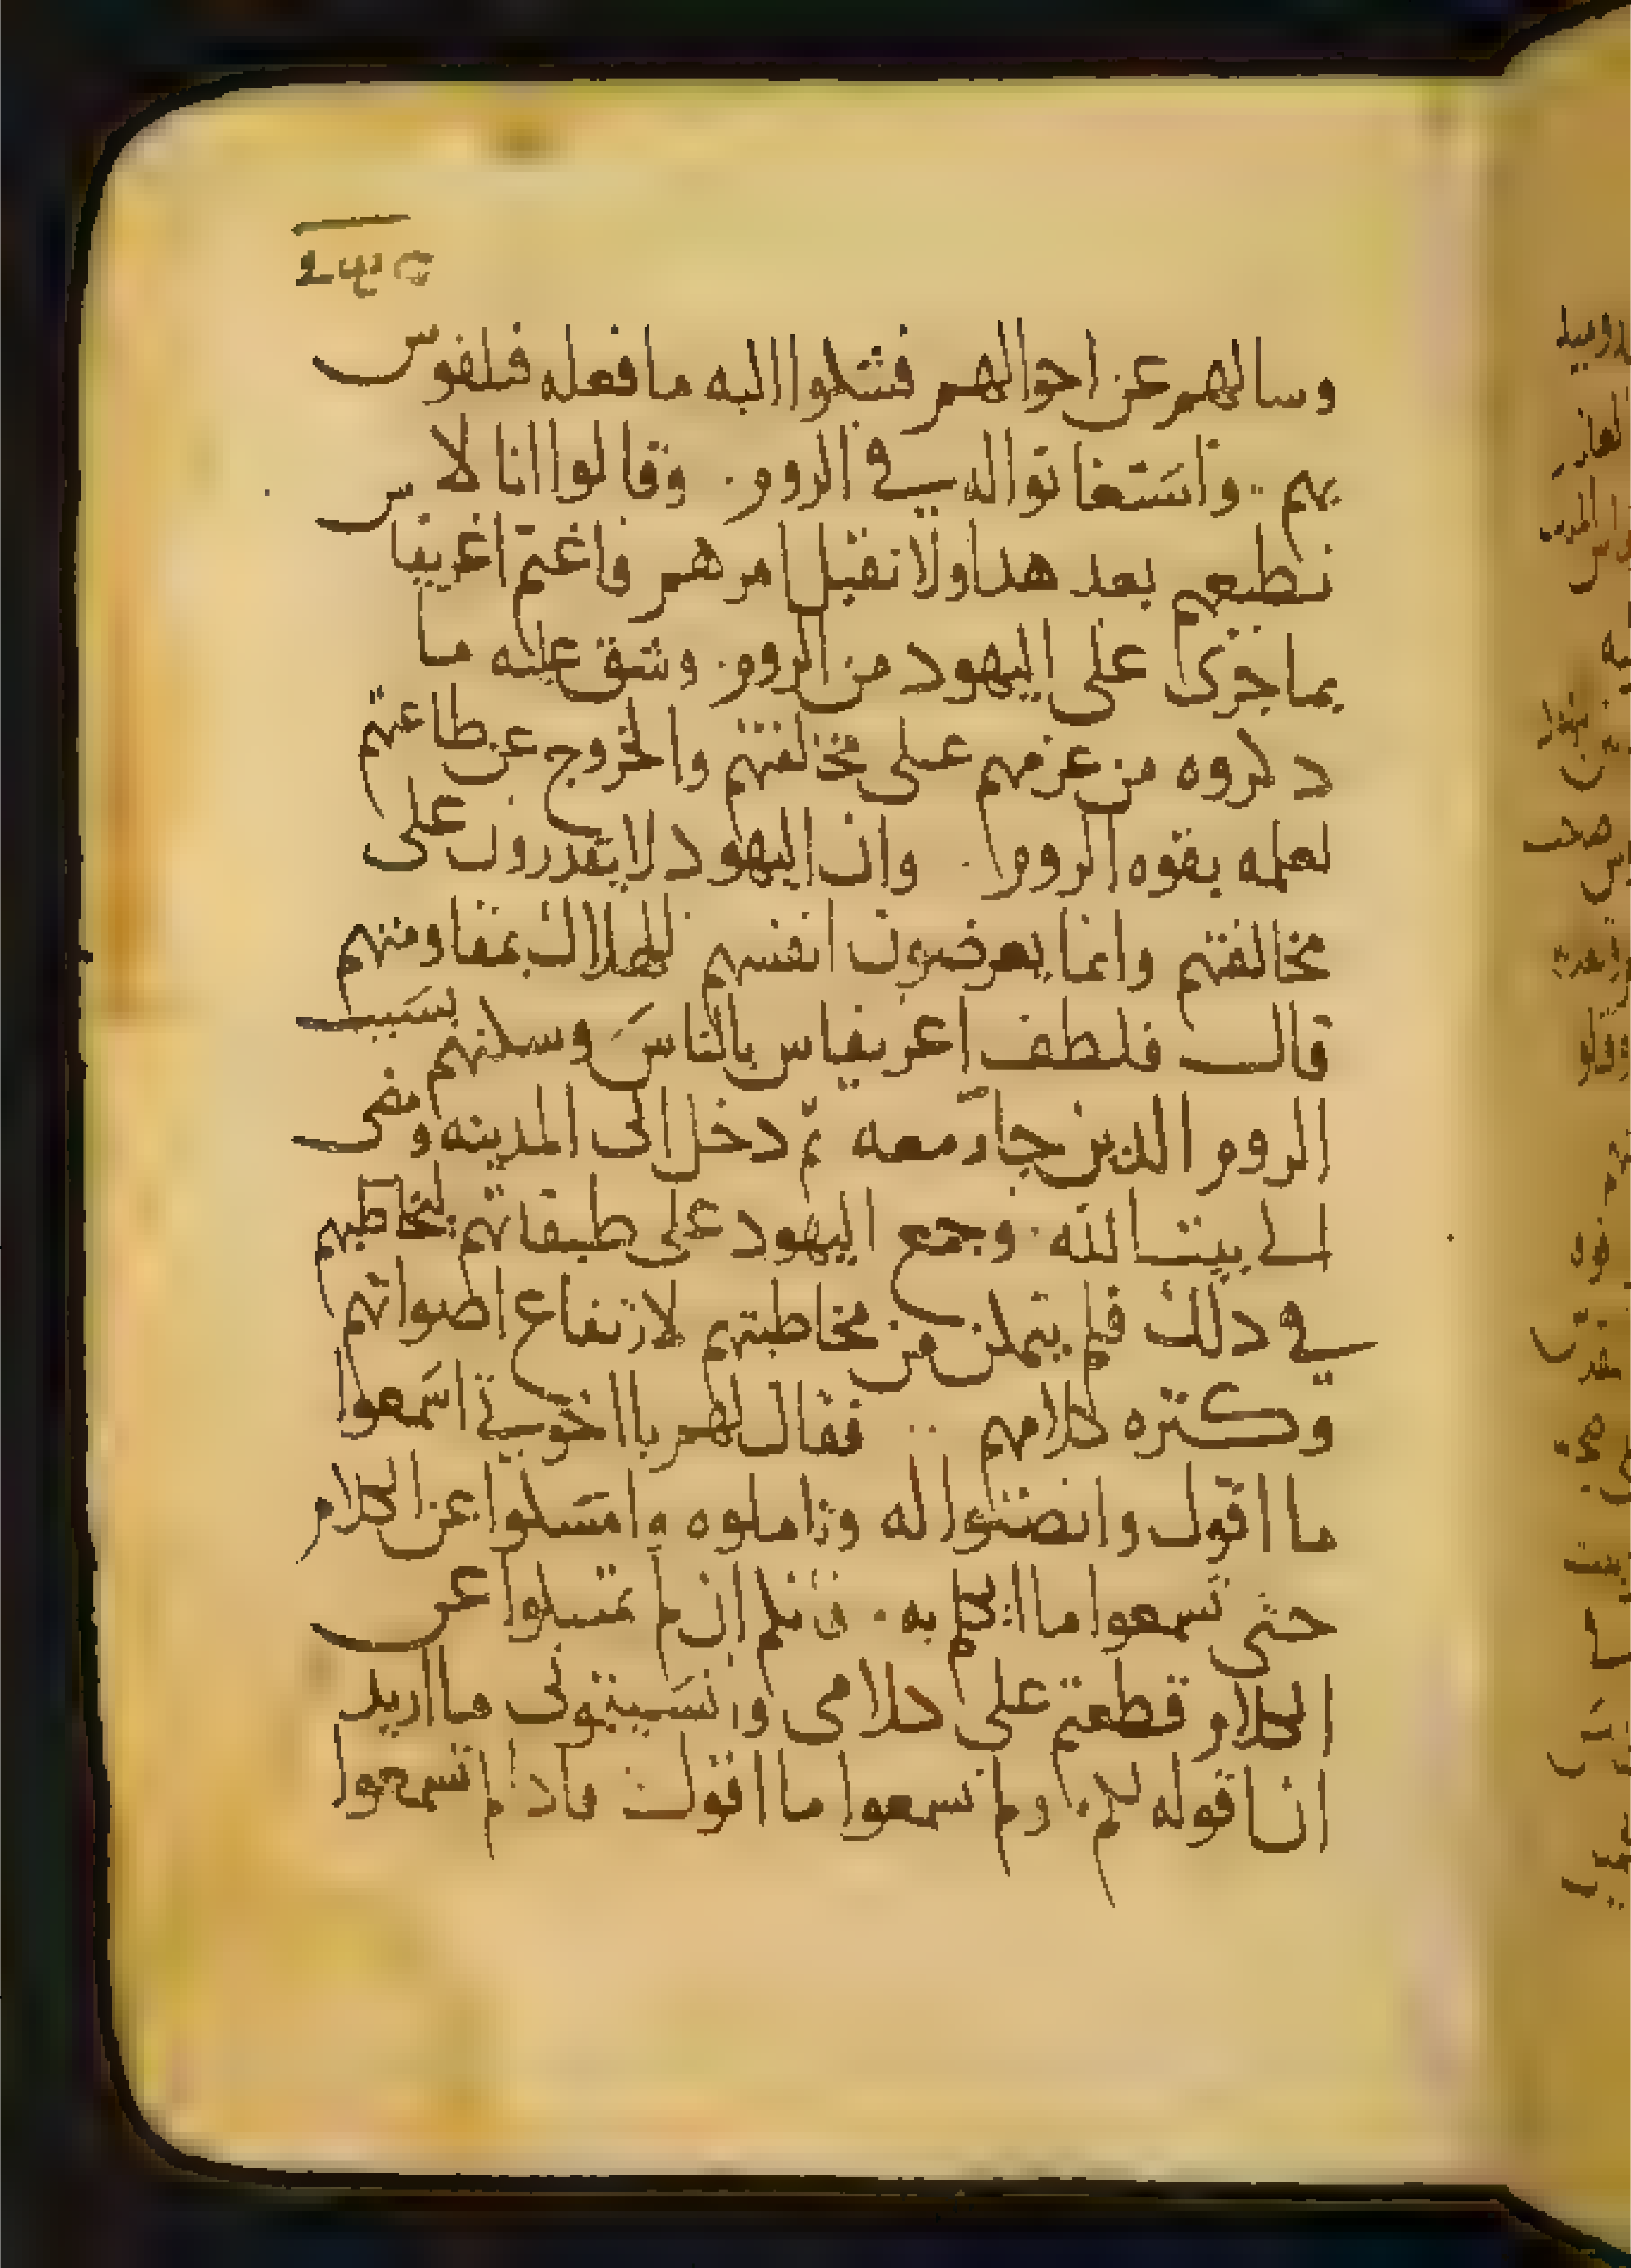 وسالهم عن احوالهم فشكوا اليه ما فعله فيلفوس
بهم واستغاثوا اليه في الروم . وقالوا انا لا
نطيعهم بعد هدا ولا نقبل امرهم فاغتم اغريفاس
بما جرى على اليهود من الروم . وشق عليه ما
دكروه من عزمهم على مخالفتهم والخروج عن طاعتهم
لعلمه بقوه الروم . وان اليهود لا يقدرون على
مخالفتهم وانما يعرضون انفسهم للهلاك بمقاومتهم
قال فلطف اغريفاس بالناس وسكنهم بسبب
الروم الدين جاؤ معه ثم دخل الى المدينه ومضى
الى بيت الله . وجمع اليهود على طبقاتهم ليخاطبهم
في دلك فلم يتمكن من مخاطبتهم لارتفاع اصواتهم
وكتره كلامهم .. فقال لهم يا اخوتي اسمعوا
ما اقول وانصتوا له وتاملوه وامسكوا عن الكلام
حتى تسمعوا ما اتكلم به . فانكم ان لم تمسكوا عن
الكلام قطعتم على كلامى وانسيتمونى ما اريد
ان اقوله لكم . ولم تسمعوا ما اقول فادا لم تسمعوا